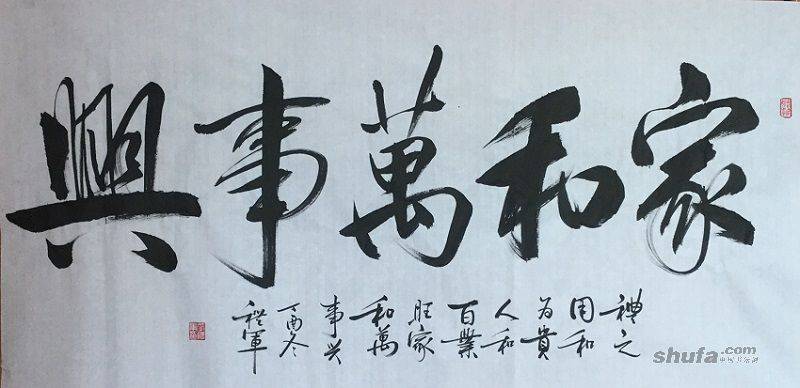 家和萬事興
禮之
用和
为貴
人和
百業
旺家
和萬
事兴
丁酉冬
軍
shufa.com